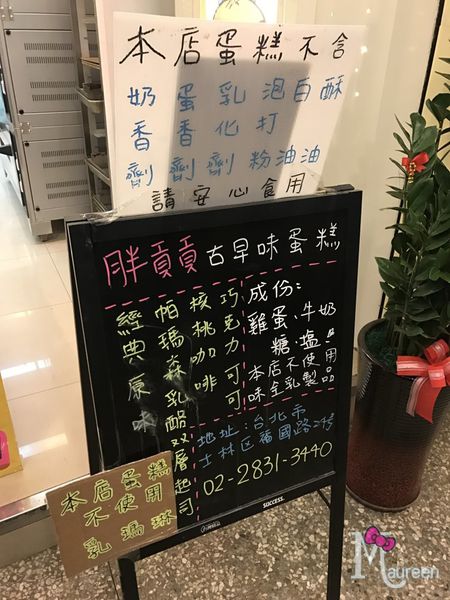 本店蛋糕不含
奶香劑
蛋香劑
乳化劑
泡打粉
白油
酥油
請安心食用
胖貢貢古早味蛋糕
巧克力可可
核桃咖啡
帕瑪森乳酪双層起司
經典原味
成份:
雞蛋、牛奶
糖、塩
本店不使用
味全乳製品
地址:台北市
士林区福國路24号
02-2831-3440
SUCCESS.
本店蛋糕
不使用
乳瑪琳
Maureen